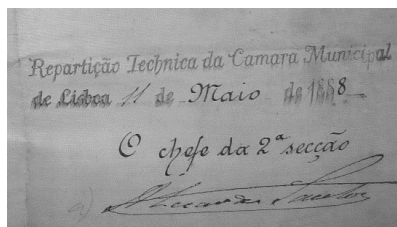 Repartição Technica da Camara Municipal
de Lisboa 11 de Maio de 1888
O chefe da 2ª secção
a)